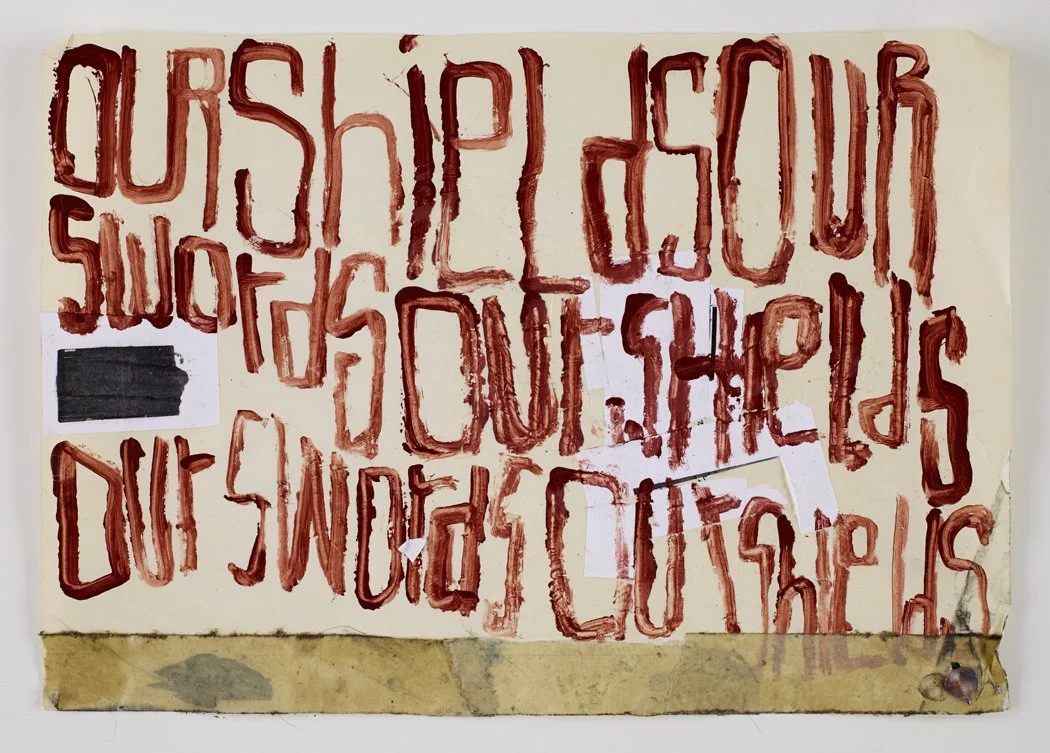 OURShiELdSOUR
SwOrdSOUrSHieLdS
OUrSWOrdSOUrShieldS